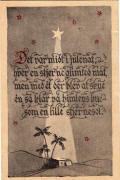 Det var midt i julenat,
hver en stjerne glimted mat,
men med et der blev at skue
en så klar på himlens bue
som en lille stjernesol.